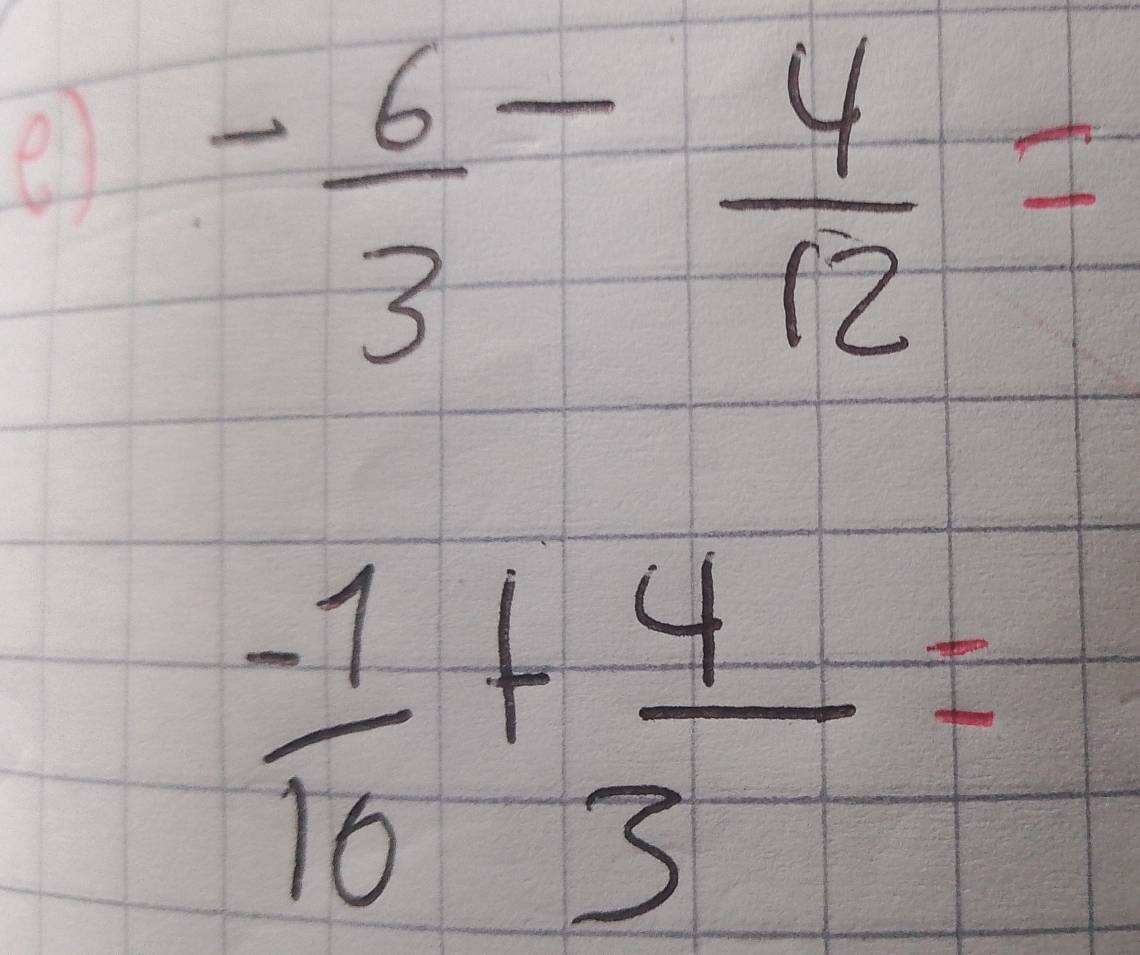 e) - 6/3 - 4/12 =
-1/10 + 4/3 =